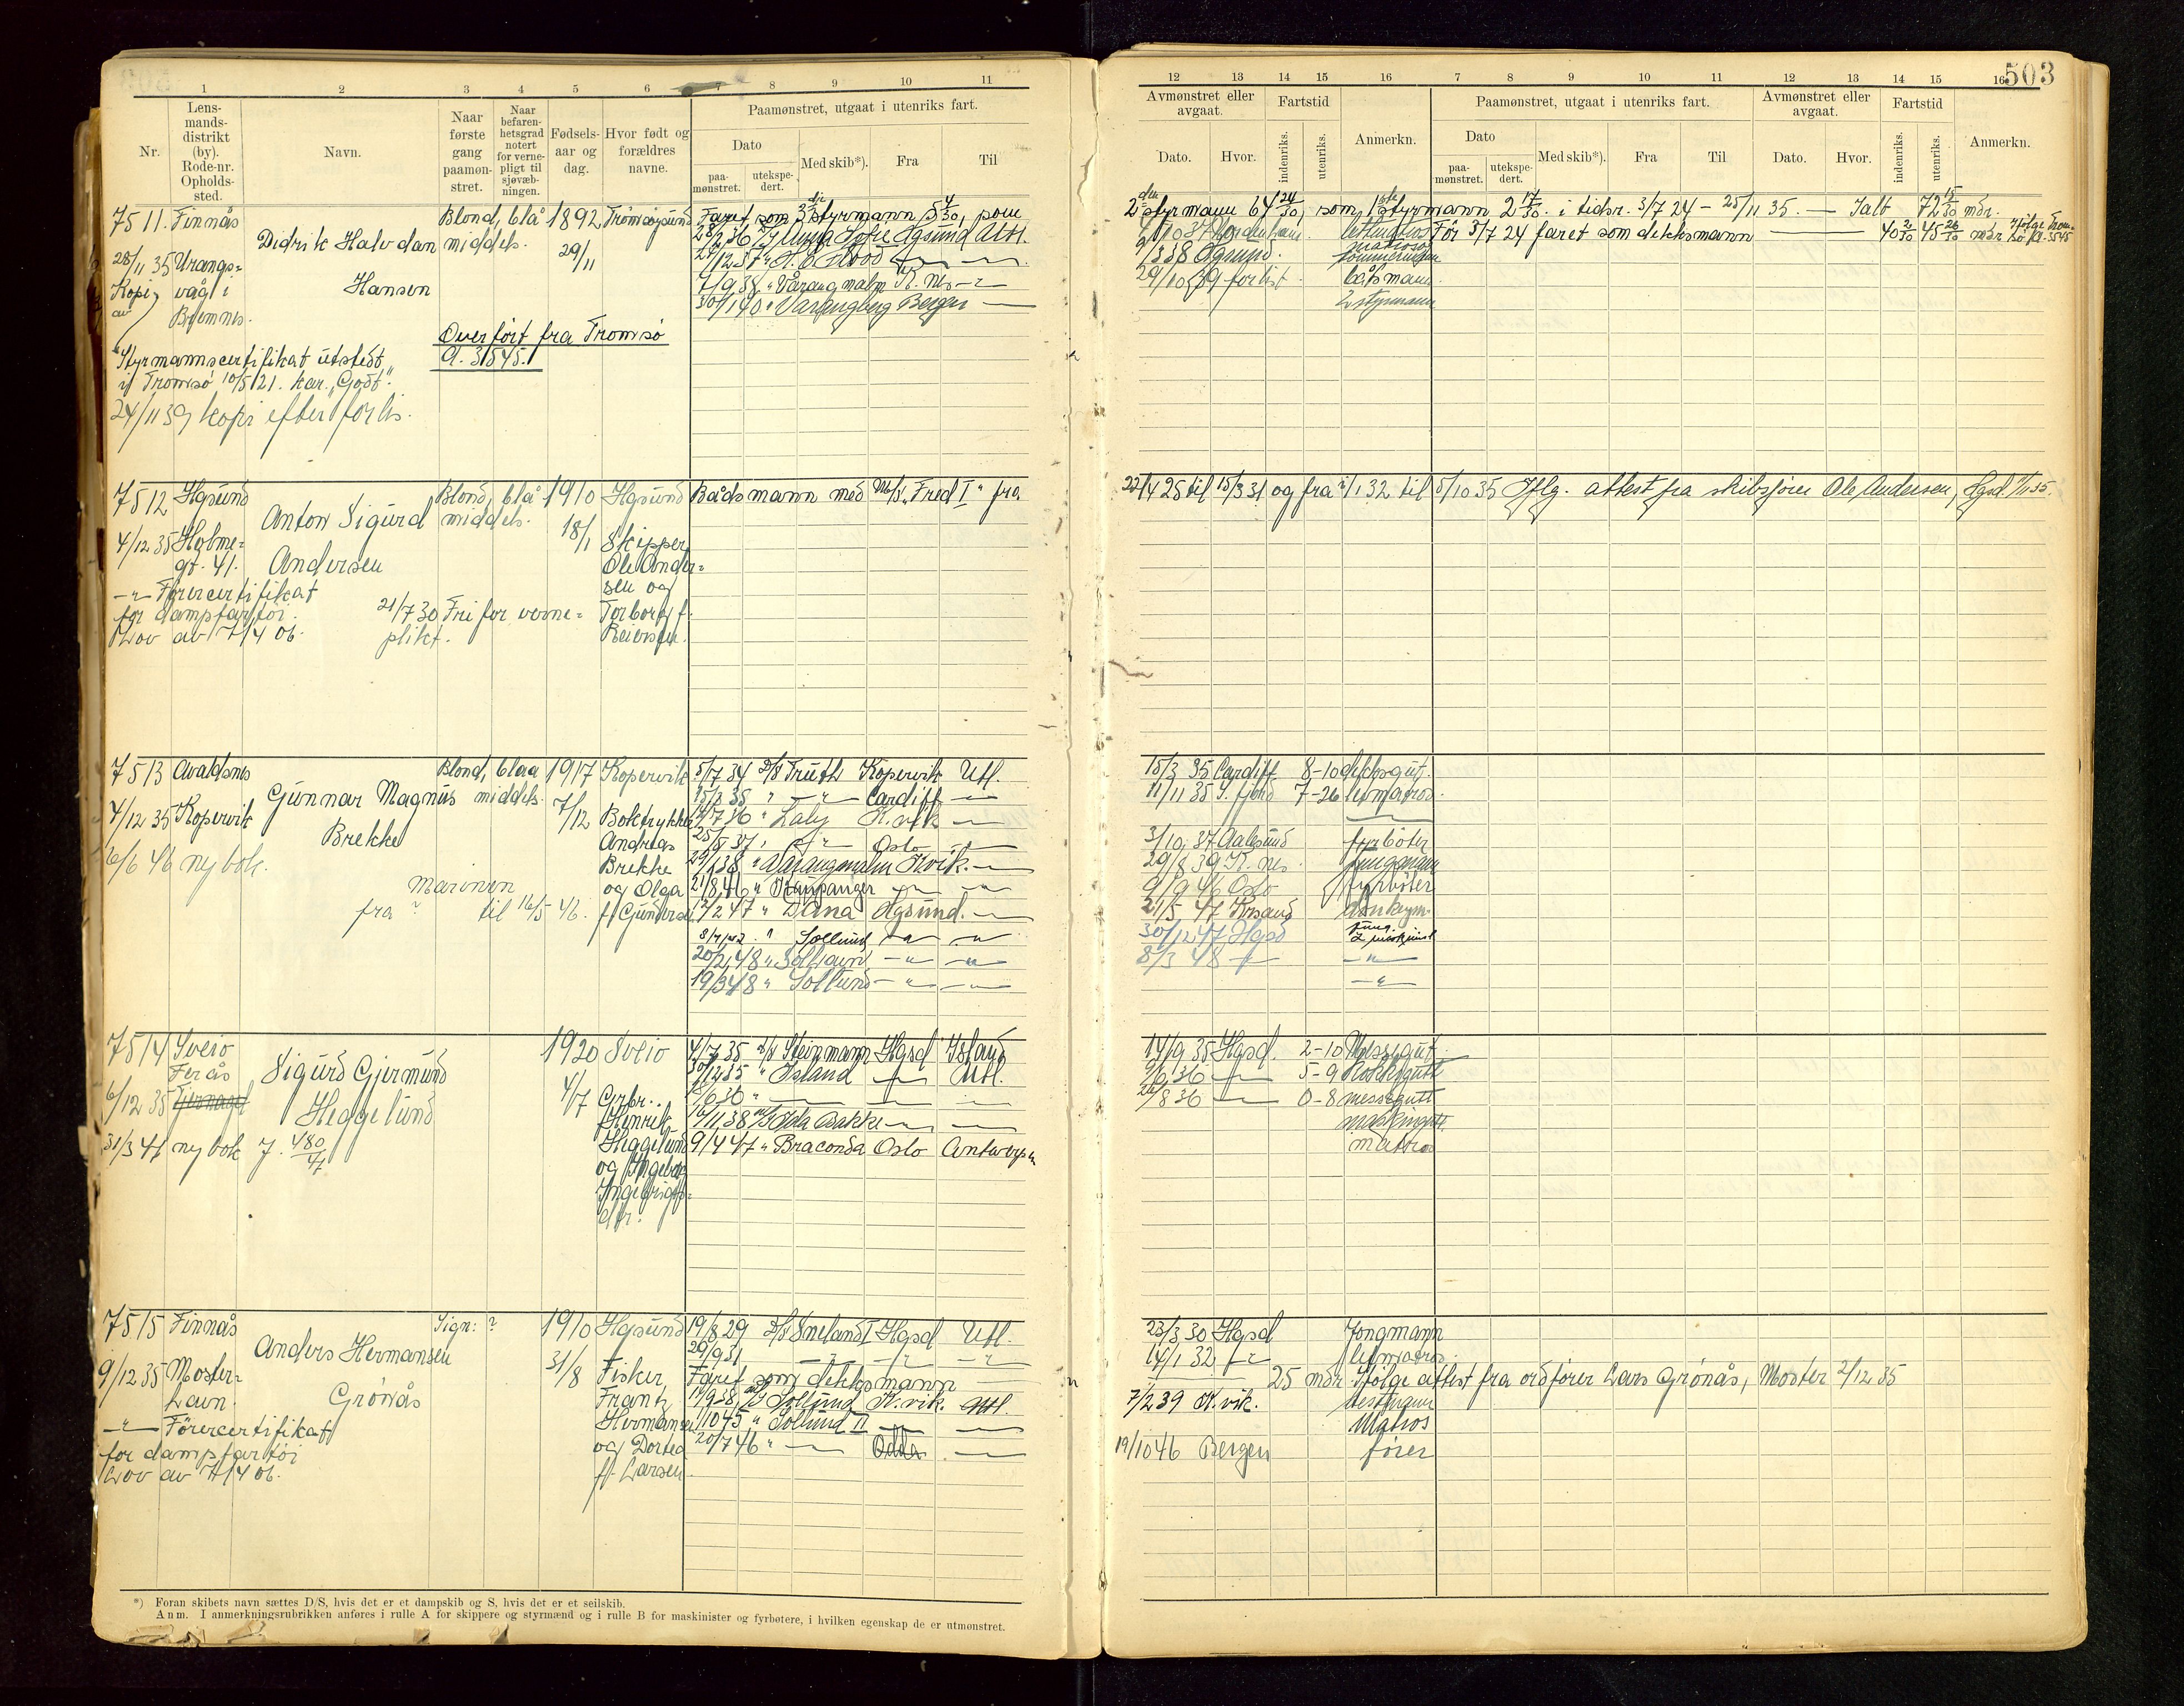 503
1 2 3 4 5 6 7 8 9 10 11
Nr.
Lens-
mands-
distrikt
(by).
Rode-nr.
Opholds-
sted.
Navn.
Naar
første
gang
paamøn-
stret.
Naar
befaren-
hetsgrad
notert
for verne-
pligt til
sjøvæb-
ningen.
Fødsels-
aar og
dag.
Hvor født og
forældres
navne.
Paamønstret, utgaat i utenriks fart.
Dato
paa-
mønstret.
utekspe-
dert.
Med skib*).
Fra
Til
12 13 14 15 16 7 8 9 10 11 12 13 14 15 16
Avmønstret eller
avgaat.
Dato.
Hvor.
Fartstid
indenriks.
utenriks.
Anmerkn.
Paamønstret, utgaat i utenriks fart.
Dato
paa-
mønstret.
utekspe-
dert.
Med skib*).
Fra
Til
Avmønstret eller
avgaat.
Dato.
Hvor.
Fartstid
indenriks.
utenriks.
Anmerkn.
7511. Finnås Blond, blå 1892 Tromsøysund
Didrik Halvdan middels. 29/11
28/11 35 Urangs-
Kopi våg i Hansen
av Bremnes.
Overført fra Tromsø
A. 3545.
Styrmannscertifikat utstedt
i Tromsø 10/5 21. kar. "Godt".
24/11 39 kopi efter forlis.
Faret som 3die styrmann 5 4/30, som
28/2 36 D/S Anna Sofie Hgsund Utl.
7/9 38 " Varangmalm K. nes
30/1 40 " Varangberg Bergen
2den styrmann 64 24/30, som 1ste styrmann 2 17/30. i tidsr. 3/7 24 - 25/11 35. — Ialt 72 15/30 mdr.
lettmatros Før 3/7 24 faret som dekksmann 40 2/30 45 26/30 mdr. Ifølge Trom-
sø A. 3545
Hgsund.
29/10 39 forlist båtsmann
2 styrmann
7512 Hgsund Blond, blå 1910 Hgsund
Anton Sigurd middels. 18/1 Skipper
4/12 35 Holme-
gt. 41. Andersen Ole Ander-
sen og
Førercertifikat
for dampfartøi. 21/7 30 Fri for verne- Torborg f.
Lov av 7/4 06. plikt. Reiersen.
Båtsmann med M/S "Fred I" fra
22/4 25 til 15/3 31 og fra 2/1 32 til 5/10 35 Iflg. attest fra skibsfører Ole Andersen, Hgsd 7/11 35.
7513 Avaldsnes Blond, blaa 1917 Kopervik
Gunnar Magnus middels. 7/12 Boktrykker
4/12 35 Kopervik Brekke Andreas
6/6 46 ny bok. Brekke
Marinen og Olga
fra ? til 16/5 46. f. Gundersen
5/7 34 D/S Truth Kopervik Utl.
15/3 35 " " Cardiff
" Laly K.vik
Oslo
29/1 38 " Varangmalm K.vik.
21/8 46 " Kaupanger
12/2 47 " Diana Hgsund.
" Sollund
20/2 48 " Solhaug
19/3 48 " Sollund
15/3 35 Cardiff 8-10 dekksgut.
11/11 35 S. fjord 7-26 letmatros.
3/10 37 Aalesund fyrbøter
29/8 39 K. nes.
9/9 46 Oslo fyrbøter
21/5 47 Krsand donkeym.
30/12 47 Hgsd 2 maskinist
8/3 48
7514 Sveio 1920 Sveio
Ferås Sigurd Gjermund 4/7 Grbr.
6/12 35 Tjernagel Heggelund Henrik
31/3 47 ny bok J. 480/47 Heggelund
og Ingeborg
Ingebrigts-
dtr.
4/7 35 D/S Steinmann Hgsd Island
30/12 35 " Island Utl.
16/11 38 M/S Ida Bakke
9/4 47 " Braconda Oslo Antwerpen
14/9 35 Hgsd. 2-10 Messegut.
9/6 36 5-9 Kokksgutt
/8 36 0-8 messegutt
maskingutt.
matros
7515 Finnås Sign: ? 1910 Hgsund
Anders Hermansen 31/8 Fisker
9/12 35 Moster-
havn. Grønås Frantz
Førercertifikat Hermansen
for dampfartøi og Dortea
Lov av 7/4 06. f. Larsen.
19/8 29 D/S Sneland I Hgsd Utl.
29/9 31
Faret som dekksmann
19/9 38 M/S Sollund K.vik. Utl.
1/10 45 " Sollund II
20/7 46 " Odda
23/3 30 Hgsd Jongmann
14/1 32 letmatros
25 mdr. ifølge attest fra ordfører Lars Grønås, Moster 2/12 35
7/2 39 K.vik. bestmann
Matros
19/10 46 Bergen fører
*) Foran skibets navn sættes D/S, hvis det er et dampskib og S, hvis det er et seilskib.
Anm. I anmerkningsrubrikken anføres i rulle A for skippere og styrmænd og i rulle B for maskinister og fyrbøtere, i hvilken egenskap de er utmønstret.